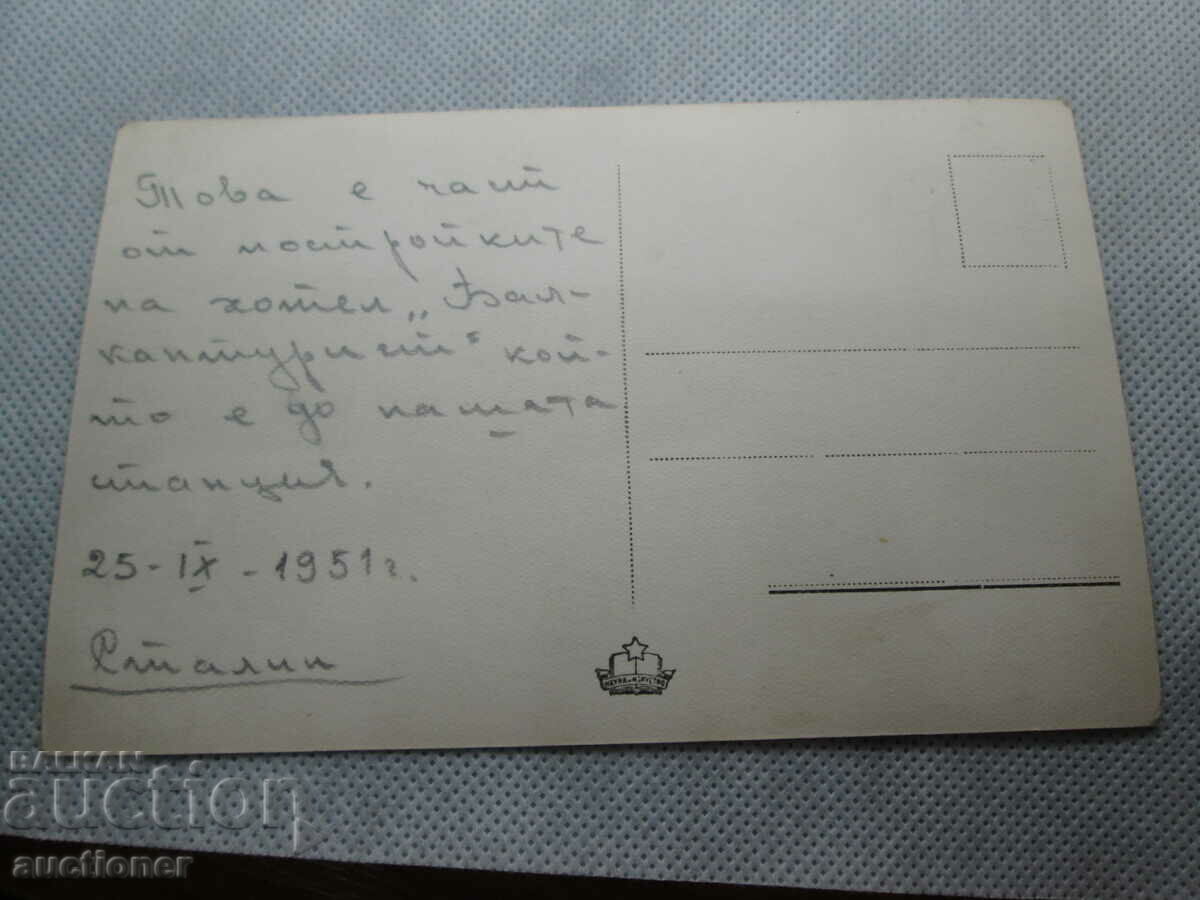 Това е част
от постройките
на хотел „Бал-
кантурист" кой-
то е до нашата
станция.
25-IX-1951 г.
Сталин
НАУКА И ИЗКУСТВО
BALKAN
auction
auctioner